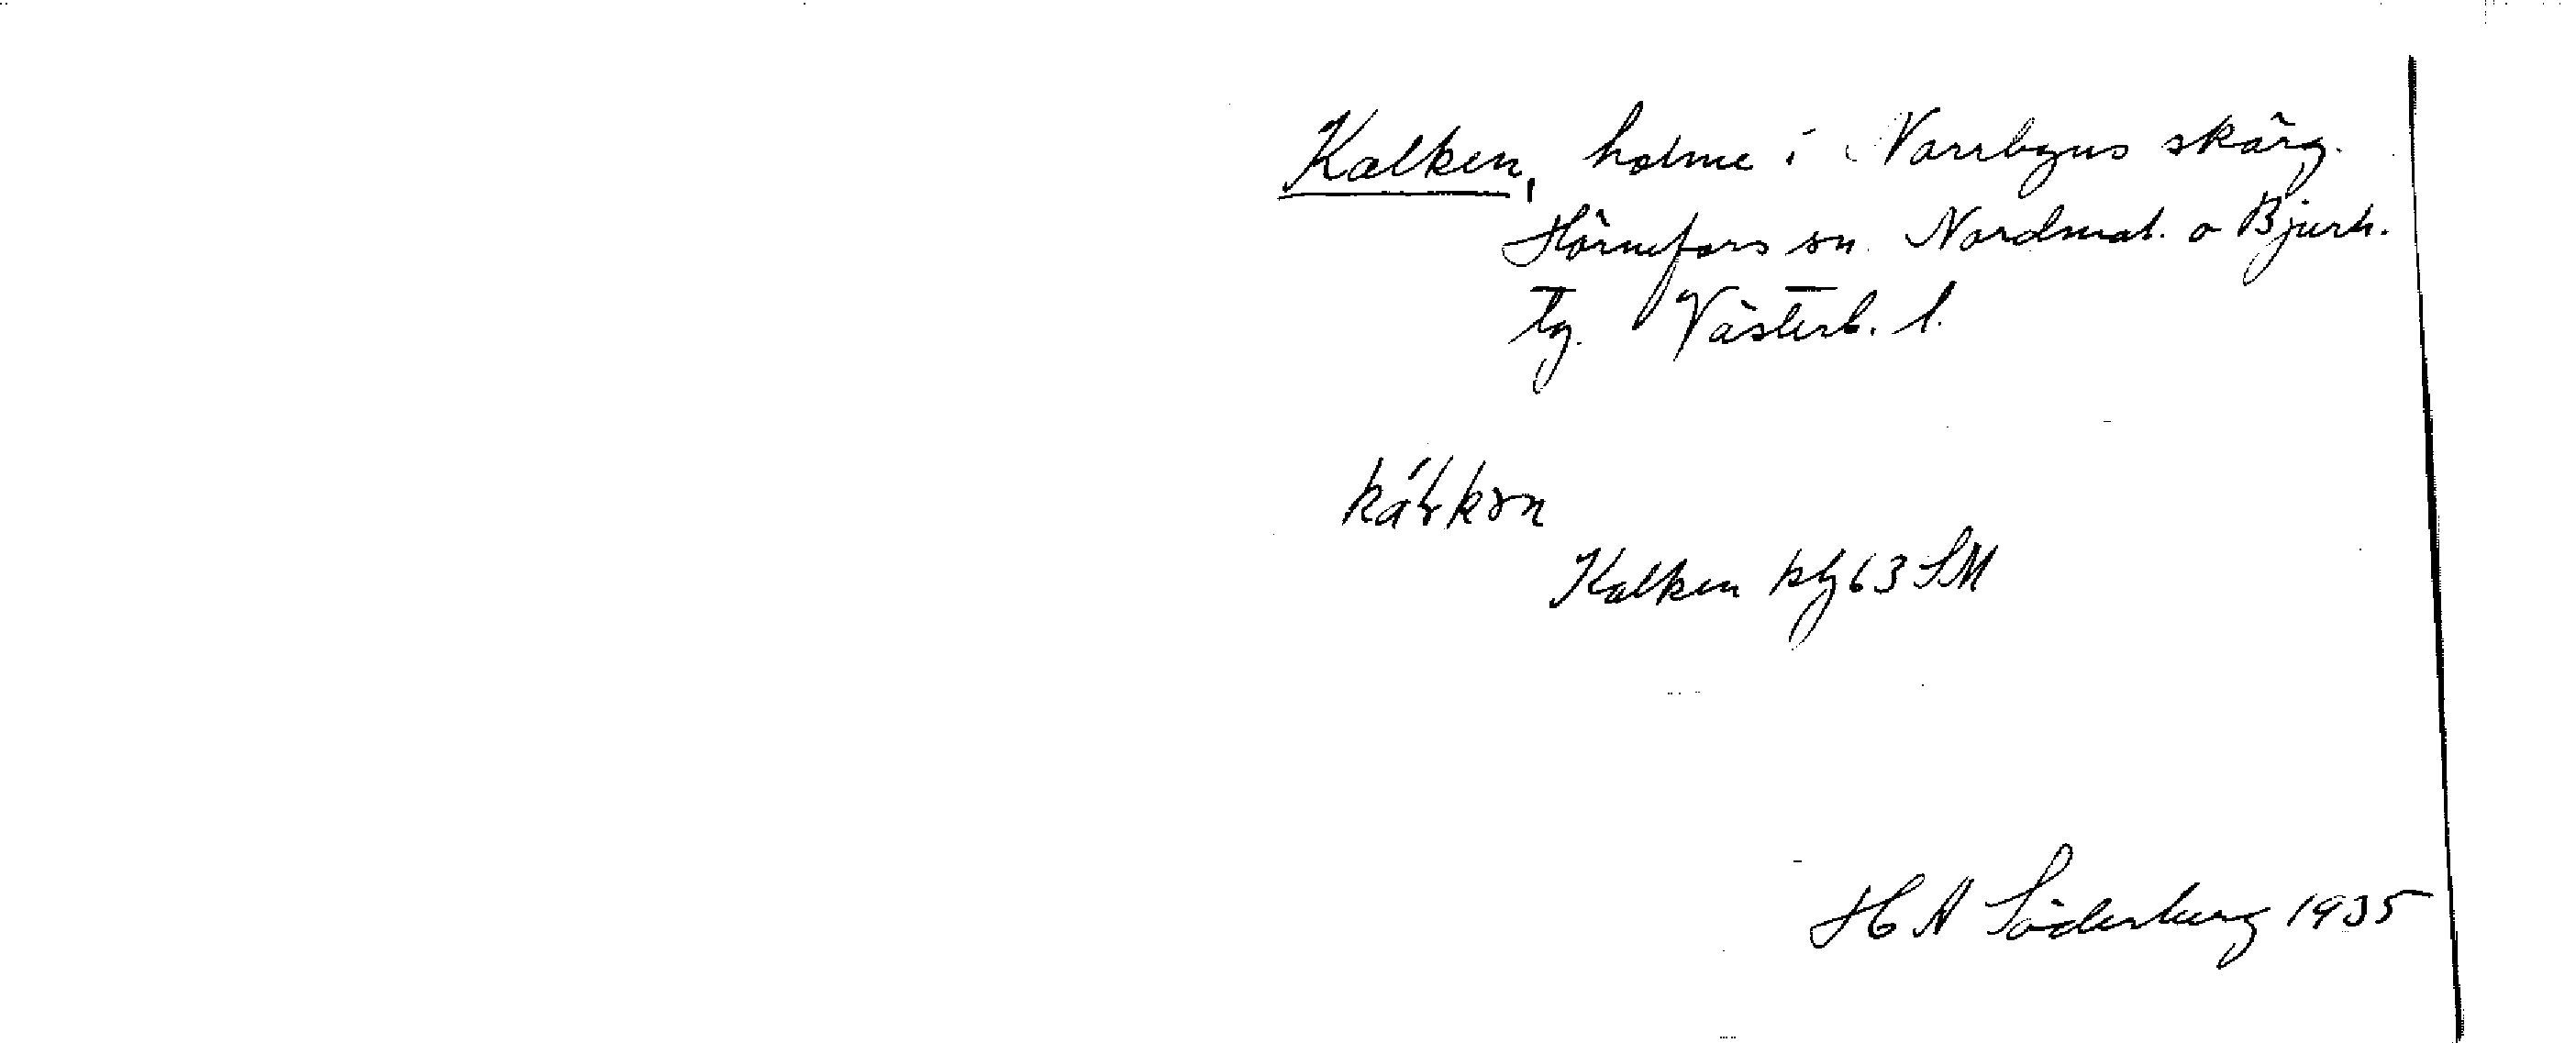 Kalken, holme i Norrbyns skärg.
Hörnefors sn. Nordmal. o Bjurh.
tg. Västerb. l.
Kalken kbg 63 SM
H A Söderberg 1935